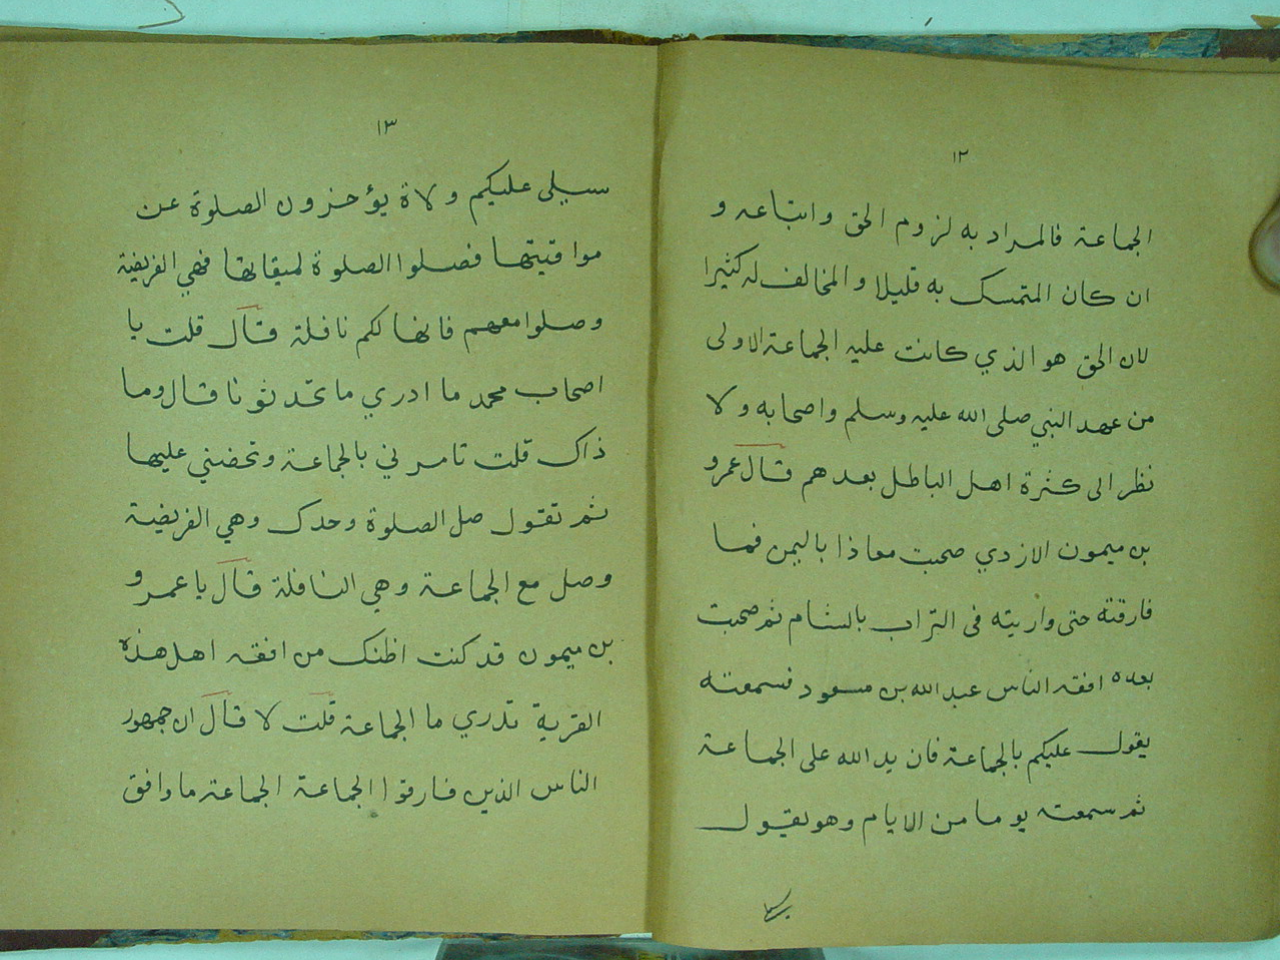 ١٢
الجماعة فالمراد به لزوم الحق واتباعه و
ان كان المتمسك به قليلا والمخالف له كثيرا
لان الحق هو الذي كانت عليه الجماعة الاولى
من عهد النبي صلى الله عليه وسلم واصحابه ولا
نظر الى كثرة اهل الباطل بعدهم قال عمرو
بن ميمون الازدي صحبت معاذا باليمن فما
فارقته حتى واريته فى التراب بالشام ثم صحبت
بعده افقه الناس عبد الله بن مسعود فسمعته
يقول عليكم بالجماعة فان يد الله على الجماعة
ثم سمعته يوما من الايام وهو يقول
١٣
سيلى عليكم ولاة يؤخرون الصلوة عن
مواقيتها فصلوا الصلوة لميقاتها فهي الفريضة
وصلوا معهم فانها لكم نافلة قال قلت يا
اصحاب محمد ما ادري ما تحدثونا قال وما
ذاك قلت تامرني بالجماعة وتحضني عليها
ثم تقول صل الصلوة وحدك وهي الفريضة
وصل مع الجماعة وهي النافلة قال يا عمرو
بن ميمون قد كنت اظنك من افقه اهل هذه
القرية تدري ما الجماعة قلت لا قال ان جمهور
الناس الذين فارقوا الجماعة الجماعة ما وافق